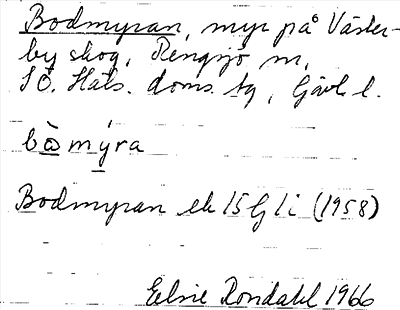 Bodmyran, myr på Väster-
by skog, Rengsjö sn,
SÖ. Häls. doms. tg, Gävle l.
bò̱ mý̱ra
Bodmyran ek 15G 1i (1958)
Elsie Rondahl 1966